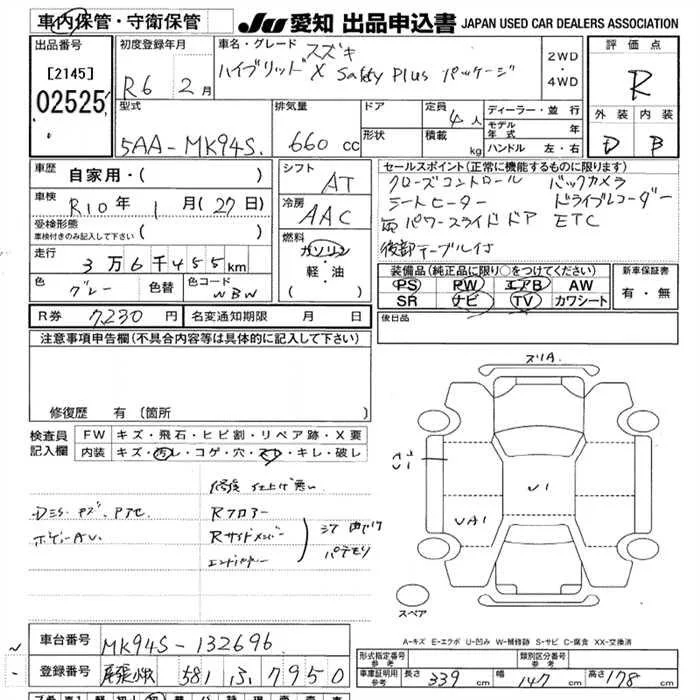 車内保管・守衛保管
JU 愛知 出品申込書 JAPAN USED CAR DEALERS ASSOCIATION
出品番号
[2145]
02525
初度登録年月
R6 2月
車名・グレード スズキ
ハイブリッド X Safety Plus パッケージ
2WD
・
4WD
評価点
R
外装 内装
D B
型式
5AA-MK94S.
排気量
660 cc
ドア
形状
定員 4人
積載 kg
ディーラー・並行
モデル年式 年
ハンドル 左・右
車歴 自家用・( )
車検 R10年 1月(27日)
受検形態
車検付きのみ記入して下さい ( )
走行
3万6千455km
色 グレー 色替 色コード WBW
シフト
AT
冷房
AAC
燃料
ガソリン
軽・油
( )
セールスポイント(正常に機能するものに限ります)
クローズコントロール バックカメラ
シートヒーター ドライブレコーダー
両パワースライドドア ETC
後部テーブル付
装備品(純正品に限り○をつけてください)
PS PW エアB AW
SR ナビ TV カワシート
新車保証書
有・無
R券 7,230円 名変通知期限 月 日
後日品
注意事項申告欄(不具合内容等は具体的に記入して下さい)
修復歴 有 [箇所
検査員記入欄
FW キズ・飛石・ヒビ割・リペア跡・X要
内装 キズ・汚レ・コゲ・穴・スレ・キレ・破レ
修復 仕上げ悪い
Rフロアー
Rサイドメンバー
エンドパネル
ボディーAU.
パテモリ
スリA.
U1
UA1
スペア
A-キズ E-エクボ U-凹み W-補修跡 S-サビ C-腐食 XX-交換済
車台番号 MK94S-132696
登録番号 尾張小牧 581 ふ 7950
形式指定番号 参考
類別区分番号 参考
車庫証明用 参考 長さ 339cm 幅 147cm 高さ 178cm